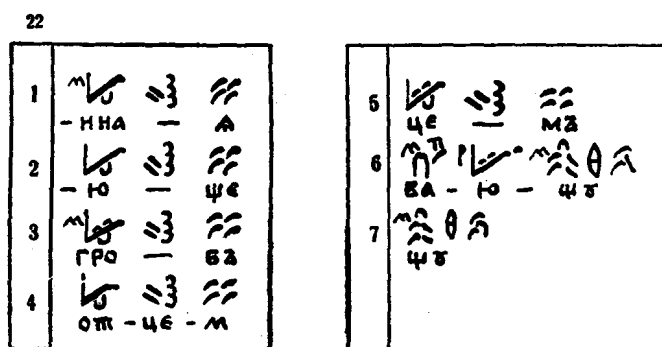 22
1 - ННА — Ѧ
2 - Ю — ЩЕ
3 ГРО — БЪ
4 ОТ - ЦЕ - М
5 ЦЕ — МЪ
6 ВА - Ю - ЩꙊ
7 ЩꙊ